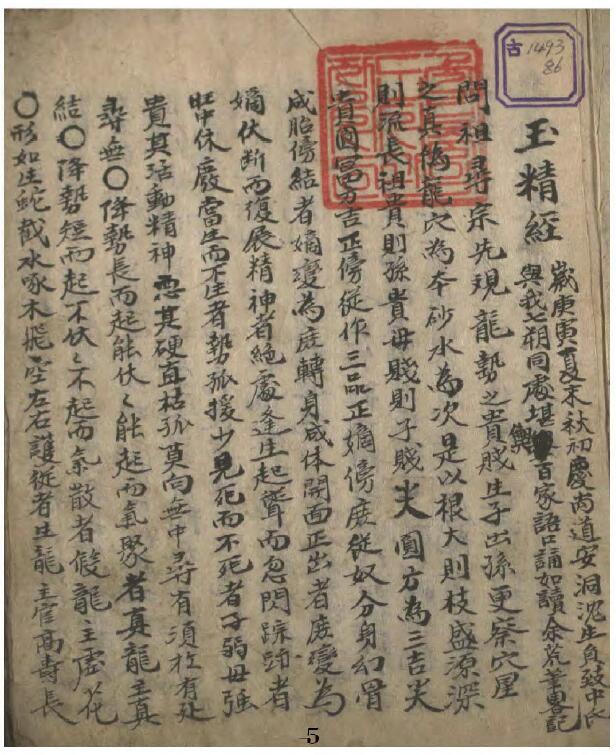 古 1493
86
玉精經
歲庚寅夏末秋初慶尚道安洞沈生員致中氏
與我七朔同處堪輿百家語口誦如讀余荒筆畧記
問祖尋宗先現龍勢之貴賤生子出孫更察穴星
之真偽龍穴為本砂水為次是以根大則枝盛源深
則流長祖貴則孫貴母賤則子賤尖圓方為三吉尖
貴圓富方吉正傍從作三品正嫡傍庶從奴分身幻骨
成胎傍結者嫡變為庶轉身成体開面正出者庶變為
嫡伏斷而復展精神者絶處逢生起聳而忽閃踪跡者
旺中休廢當生而不生者勢孤援少見死而不死者子弱母強
貴其活動精神忌其硬直枯孤莫向無中尋有須於有處
尋無〇降勢長而起能伏〻能起而氣聚者真龍主真
結〇降勢短而起不伏〻不起而氣散者假龍主虛花
〇形如生蛇戲水啄木飛空左右護從者生龍主官高壽長
5